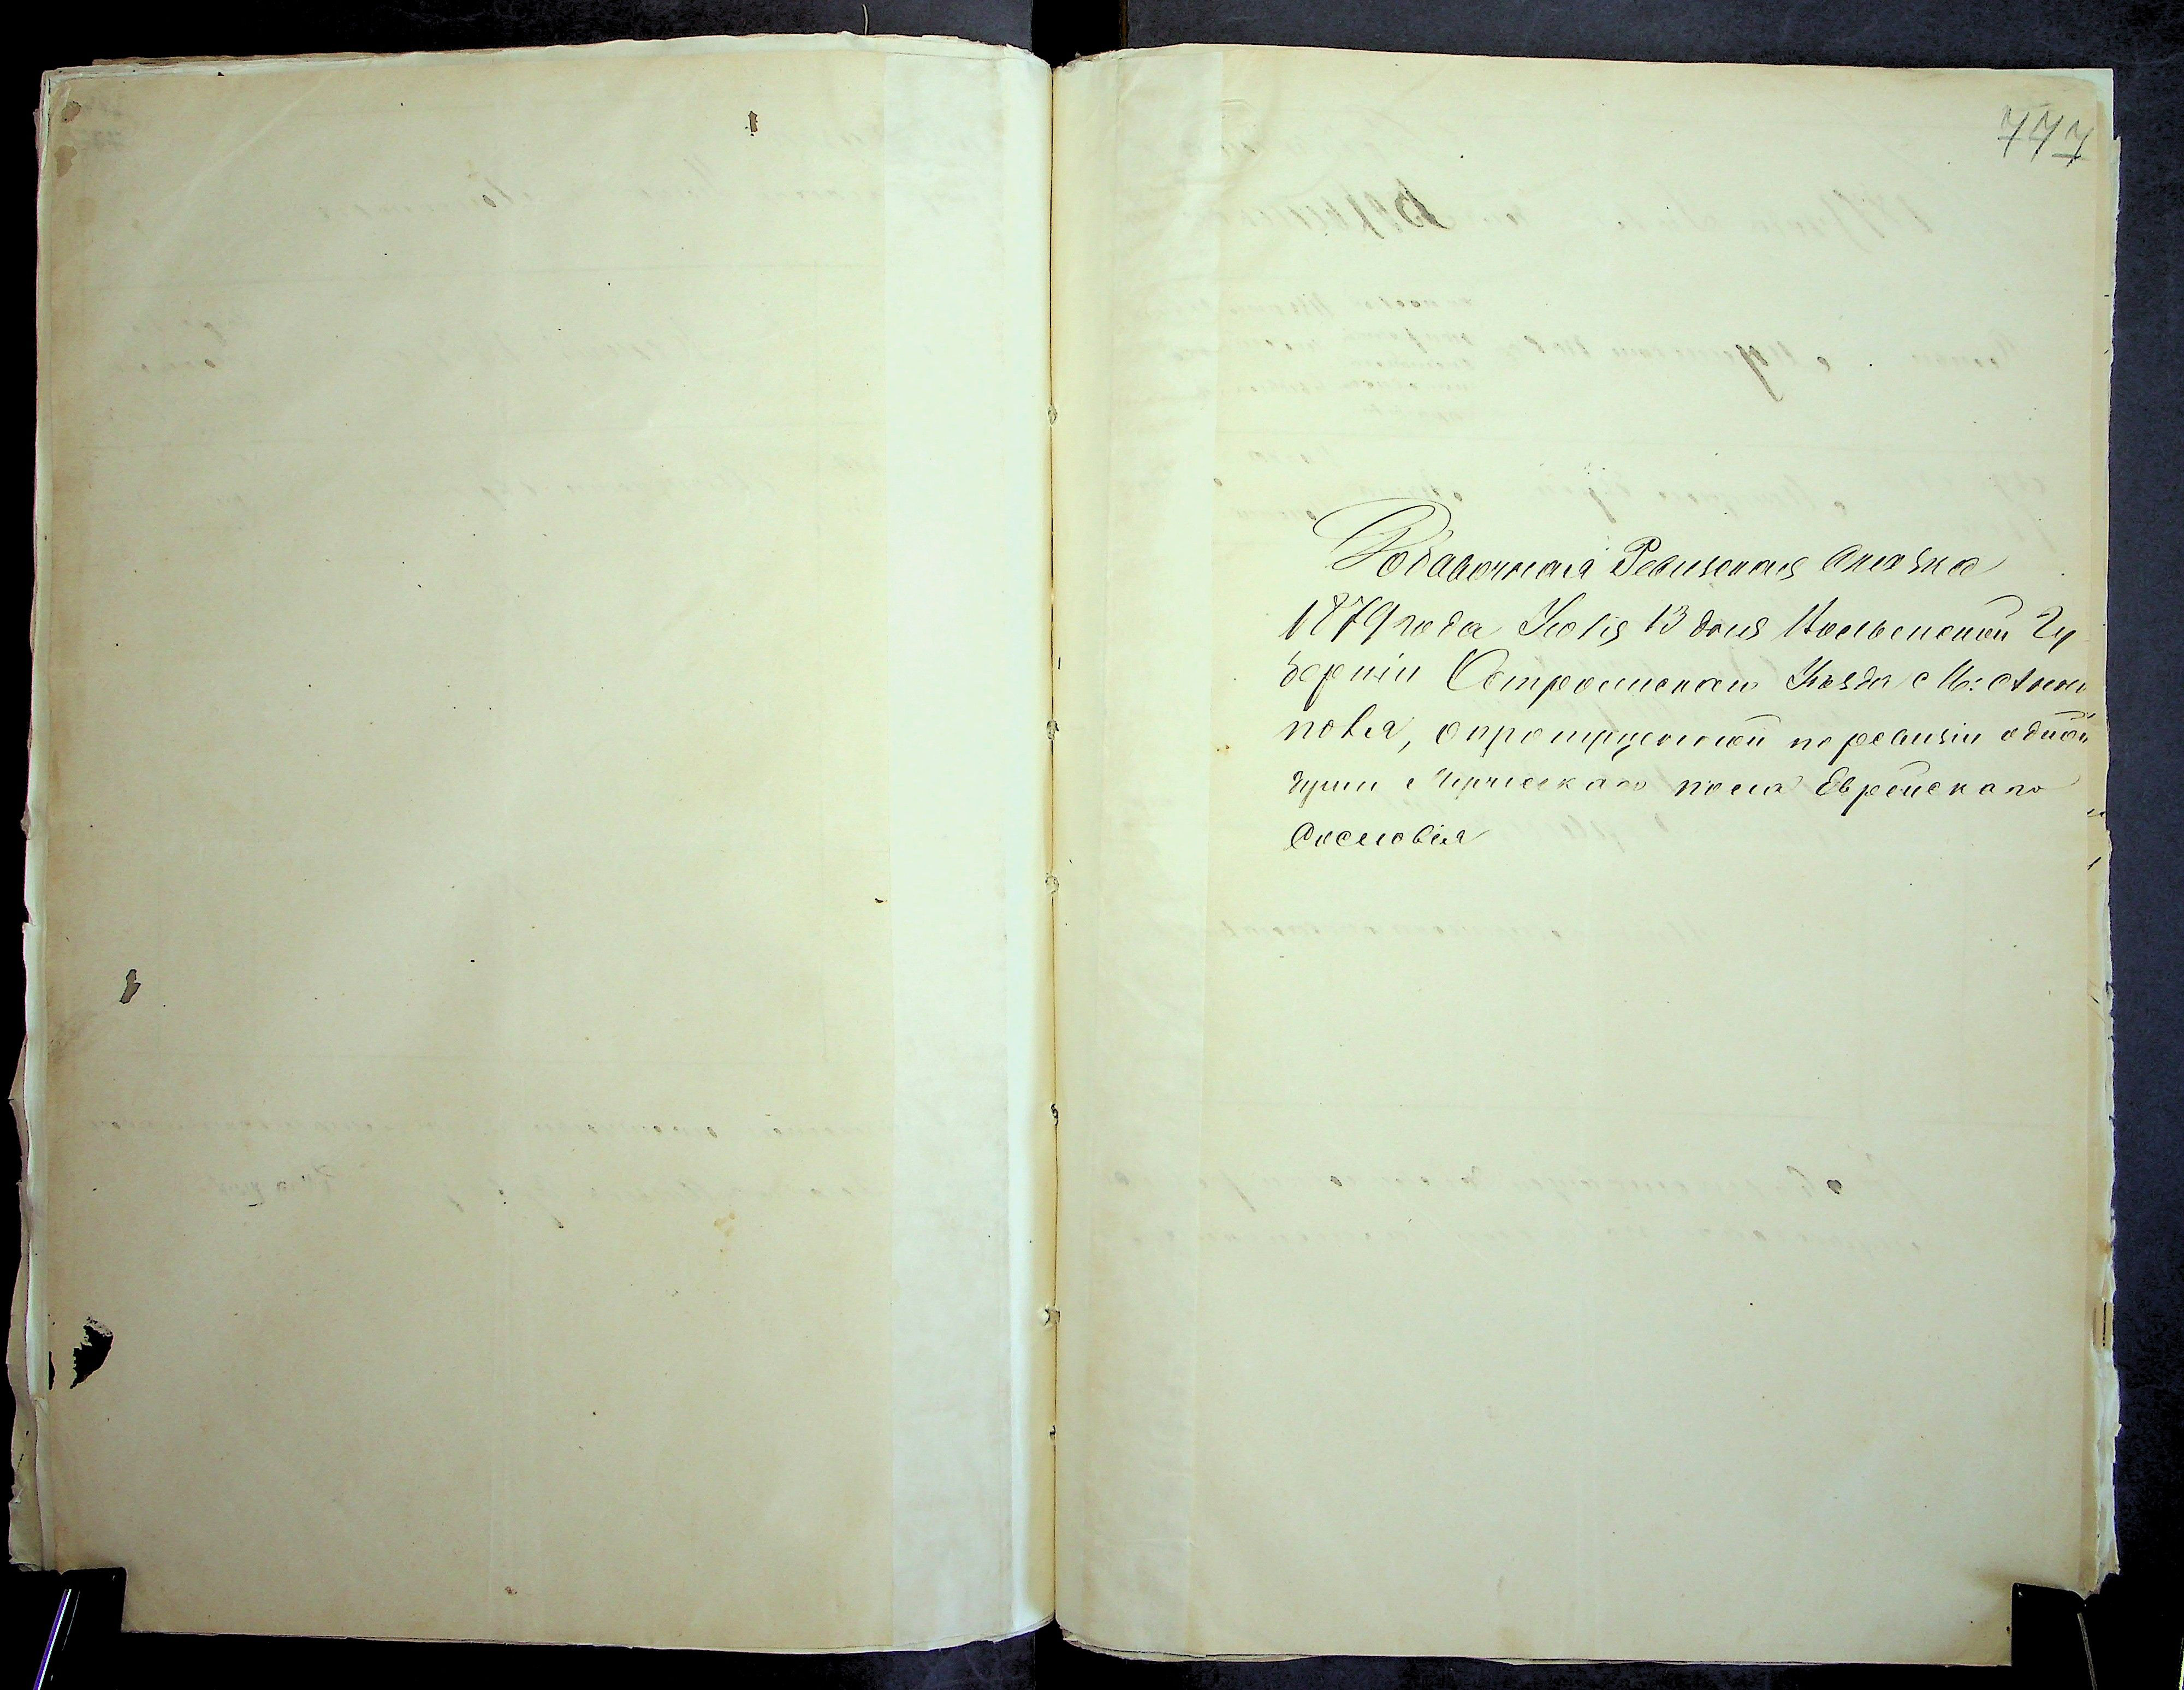 777
Добавочная Ревизская Сказка
1879 года Іюля 13 дня Волынской Гу
берніи Острожскаго Уѣзда М: Анно
поля, о пропущенной по ревизіи одной
души Мужескаго пола Еврейскаго
Сословія